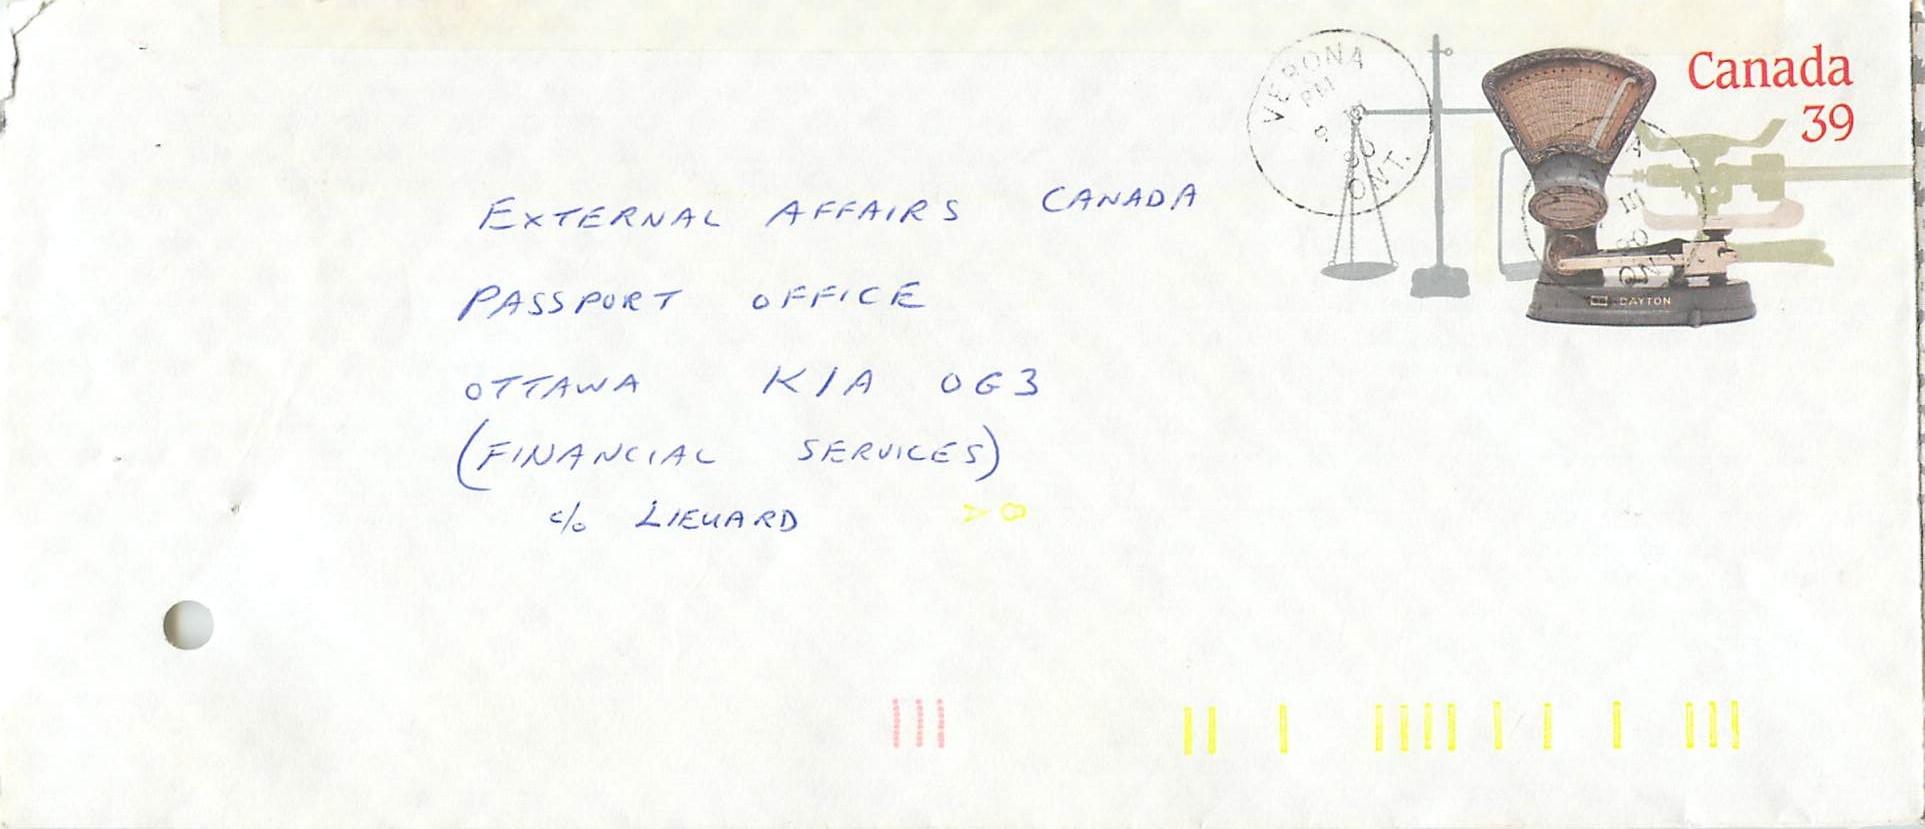 Canada
39
VERONA
PM
90
ONT.
DAYTON
EXTERNAL AFFAIRS CANADA
PASSPORT OFFICE
OTTAWA K1A 0G3
(FINANCIAL SERVICES)
c/o LIEUARD